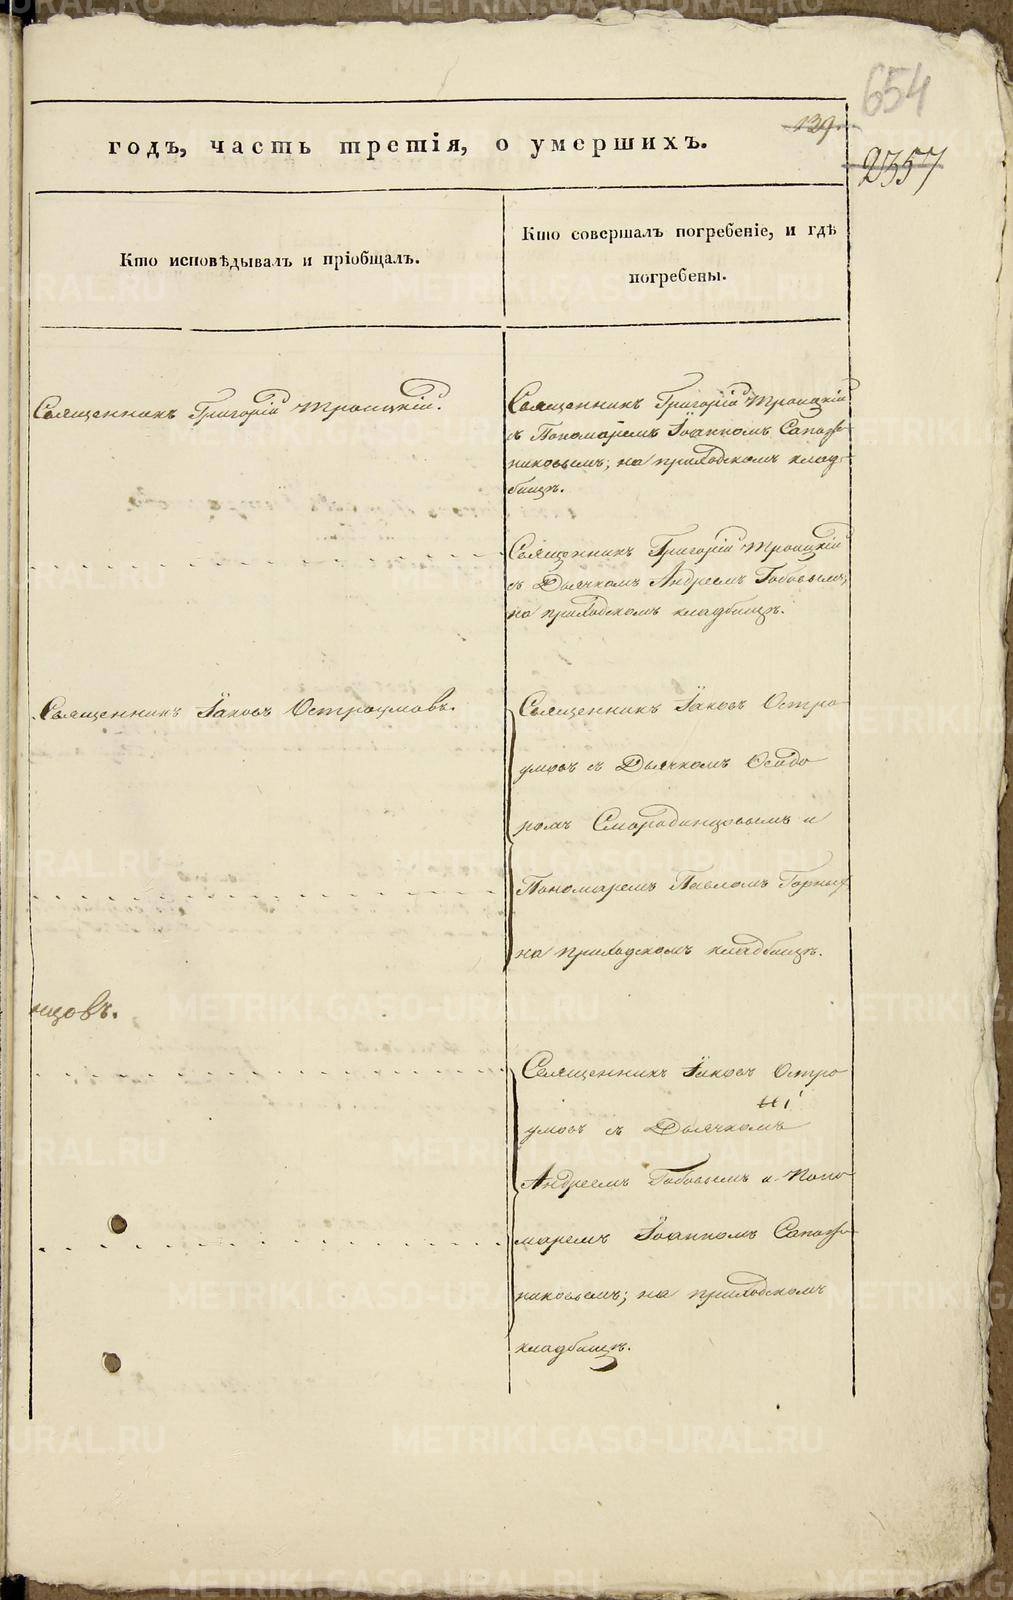 654
139.
годъ, часть третія, о умершихъ.
2357
Кто исповѣдывалъ и пріобщалъ.
Кто совершалъ погребеніе, и гдѣ
погребены.
Священникъ Григорій Троицкій.
Священникъ Григорій Троицкій
съ Пономаремъ Іоанномъ Сапож-
никовымъ; на приходскомъ клад-
бищѣ.
Священникъ Григорій Троицкій
съ Дьячкомъ Андреемъ Бобовымъ;
на приходскомъ кладбищѣ.
Священникъ Іаковъ Остроумовъ.
Священникъ Іаковъ Остро
умовъ съ Дьячкомъ Ѳеодо
ромъ Смородинцовымъ и
Пономаремъ Павломъ Горныхъ
на приходскомъ кладбищѣ.
нцовъ.
Священникъ Іаковъ Остро
умовъ съ Дьячкомъ
Андреемъ Бобовымъ и Поно
маремъ Іоанномъ Сапож-
никовымъ; на приходскомъ
кладбищѣ.
METRIKI.GASO-URAL.RU